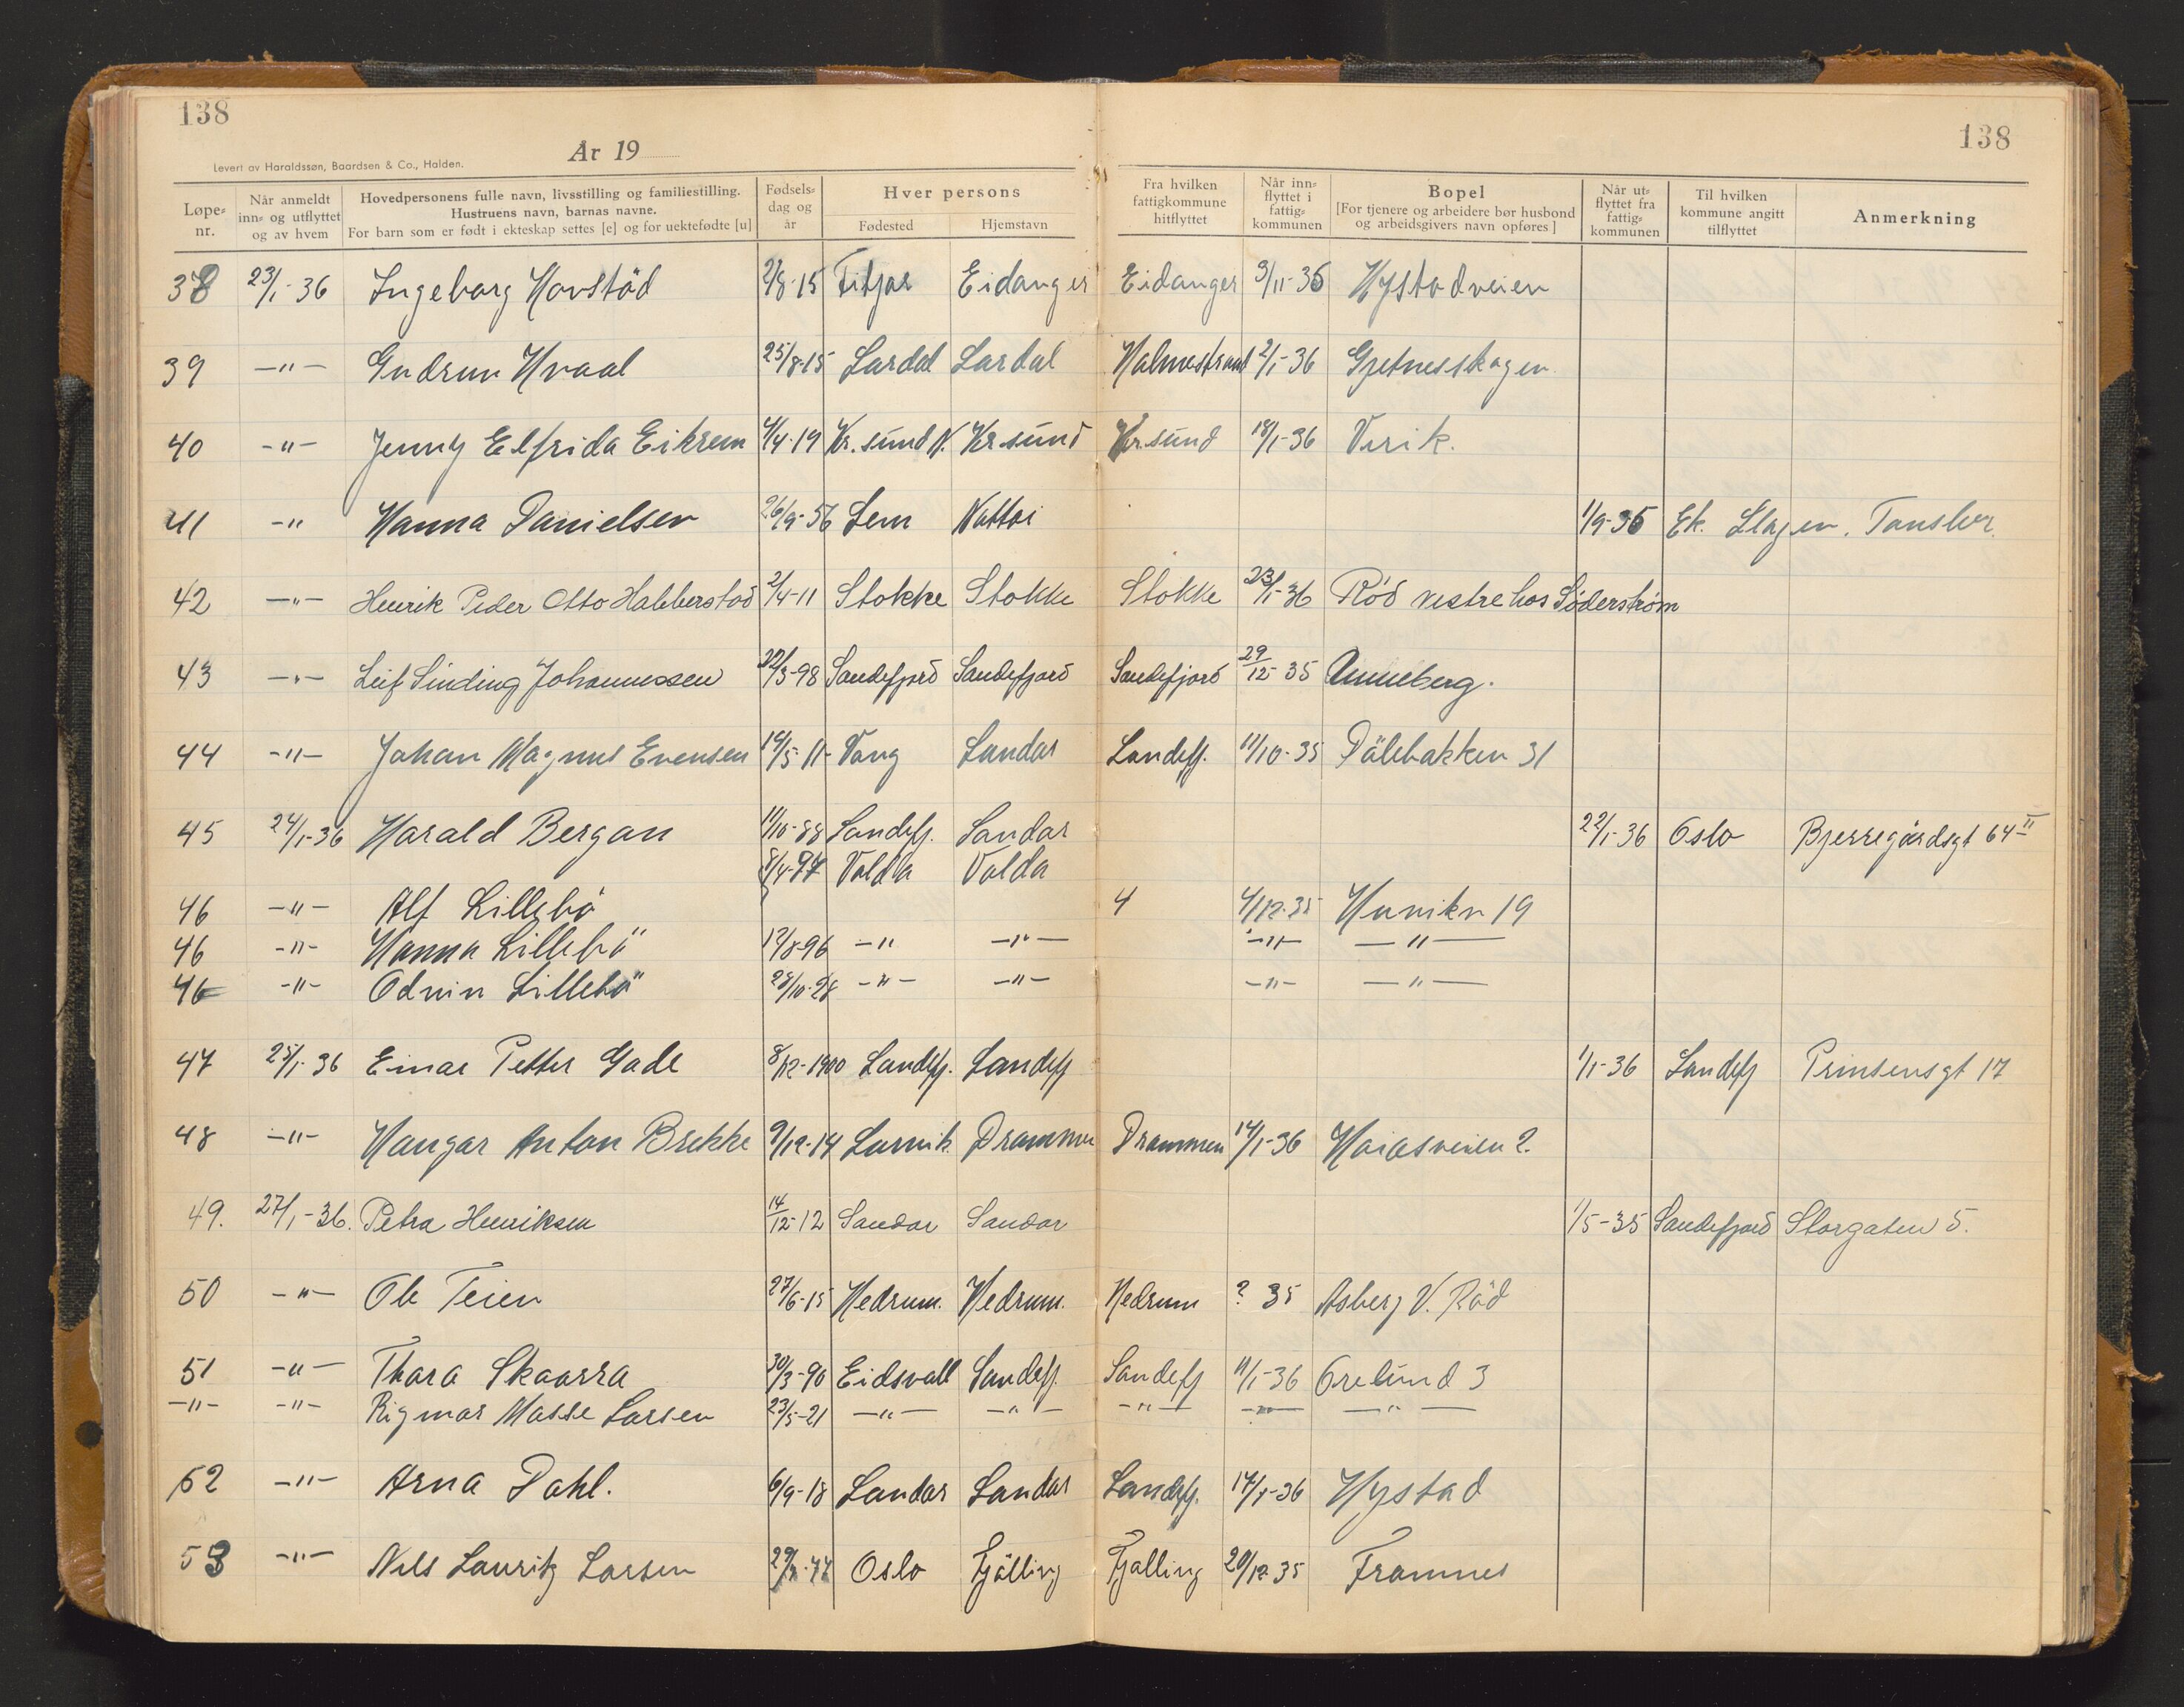 138
138
År 19
Levert av Haraldssøn, Baardsen & Co., Halden.
Løpe-nr. Når anmeldt inn- og utflyttet og av hvem Hovedpersonens fulle navn, livsstilling og familiestilling. Hustruens navn, barnas navne. For barn som er født i ekteskap settes [e] og for uektefødte [u] Fødsels-dag og år Hver persons Fødested Hjemstavn Fra hvilken fattigkommune hitflyttet Når inn-flyttet i fattig-kommunen Bopel [For tjenere og arbeidere bør husbond og arbeidsgivers navn opføres] Når ut-flyttet fra fattig-kommunen Til hvilken kommune angitt tilflyttet Anmerkning
38 23/1-36 Ingeborg Hovstöd 2/8-15 Fitjar Eidanger Eidanger 3/11-35 Hystadveien
39 -"- Gudrun Hvaal 25/8-15 Lardal Lardal Holmestrand 2/1-36 Gjetnesskogen
40 -"- Jenny Elfrida Eikrem 4/4-19 Kr.sund N. Kr.sund Kr.sund 18/1-36 Virik.
41 -" Hanna Danielsen 26/9-56 Sem 1/9-35 Ek. Slagen. Tønsber
42 -"- Henrik Peder Otto Habberstad 2/4-11 Stokke Stokke Stokke 23/1-36 Rød vestre hos Söderstrøm
43 -"- Leif Sinding Johannessen 22/3-98 Sandefjord Sandefjord Sandefjord 29/12-35 Anneberg.
44 -"- Johan Magnus Evensen 14/5-11 Vang Sandar Sandefj. 11/10-35 Dölebakken 31
45 24/1-36 Harald Bergan 11/10-88 Sandefj. Sandar 22/1-36 Oslo Bjerregårdsgt 64 II
46 -"- Alf Lillebö 8/4-97 Volda Volda 4 4/12-35 Hunikn 19
46 -"- Hanna Lillebö 17/8-96 -" -"- -"- -"-
46 -"- Odvin Lillebö 28/10-28 -"- -"- -"- -"-
47 25/1-36 Einar Petter Gade 8/12-1900 Sandefj. Sandefj 1/1-36 Sandefj Prinsensgt 17
48 -"- Hangar Anton Brekke 9/12-14 Larvik. Drammen Drammen 14/1-36 Haiasveien 2.
49. 27/1-36. Petra Henriksen 14/12-12 Sandar Sandar 1/5-35 Sandefjord Storgaten 5.
50 -"- Ole Teien 27/6-15 Hedrum. Hedrum. Hedrum ? 35 Åsberg V. Röd
51 -"- Thora Skaarra 30/3-90 Eidsvall Sandefj. Sandefj 11/1-36 Örelund 3
-"- -"- Rigmor Masse Larsen 23/5-21 -"- -"- -"- -"- -"-
52 -"- Arna Dahl. 6/9-18 Sandar Sandar Sandefj. 17/1-36 Hystad
53 -"- Nils Lauritz Larsen Oslo Tjölling Tjølling 20/12-35 Framnes